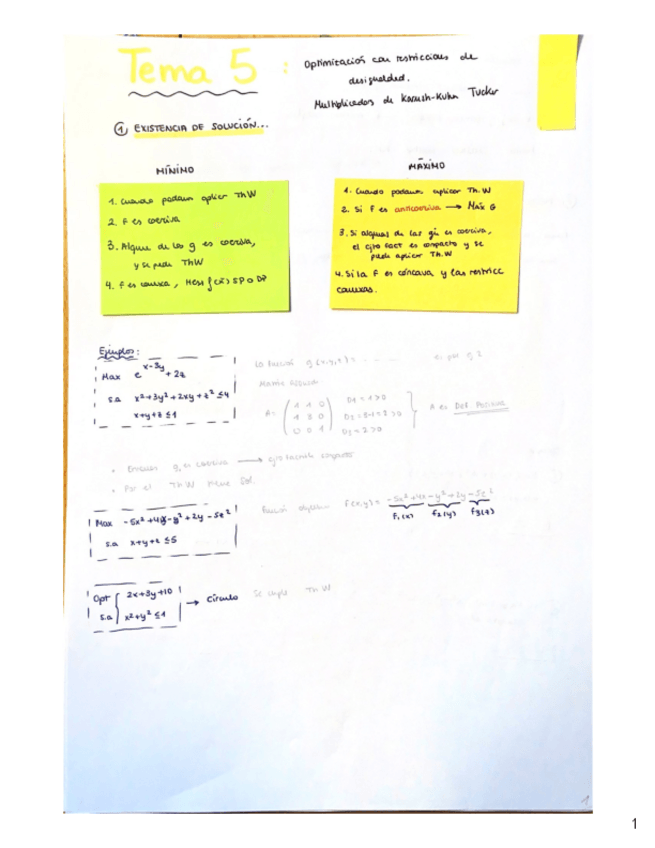 Tema 5 : Optimización con restricciones de
desigualdad.
Multiplicadores de Karush-Kuhn Tucker
① EXISTENCIA DE SOLUCIÓN...
MÍNIMO
1. Cuando podamos aplicar ThW
2. F es coerciva
3. Alguna de las g es coerciva,
y se puede ThW
4. F es convexa, Hess f(x) SP o DP
MÁXIMO
1. Cuando podamos aplicar Th.W
2. Si F es anticoerciva → Máx G
3. Si algunas de las gi es coerciva,
el cjto fact es compacto y se
puede aplicar Th.W
4. Si la F es cóncava y las restricc
convexas.
Ejemplos:
Max e^{x-3y} + 2z
s.a x²+3y²+2xy+z² ≤4
x+y+z ≤1
La función g(x,y,z) =
Matriz
A= (1 1 0
1 3 0
0 0 1)
D1 = 1 >0
D2 = 3-1 = 2 >0
D3 = 2 >0
A es Def. Positiva
• Entonces g, es coerciva → cjto factible compacto
• Por el Th W tiene Sol.
Max -5x²+4x-y²+2y-5z²
s.a x+y+z ≤5
Función objetivo F(x,y)= -5x²+4x-y²+2y-5z²
F₁(x) F₂(y) F₃(z)
Opt { 2x+3y+10
s.a x²+y² ≤1
→ Círculo Se cumple Th W
1
1